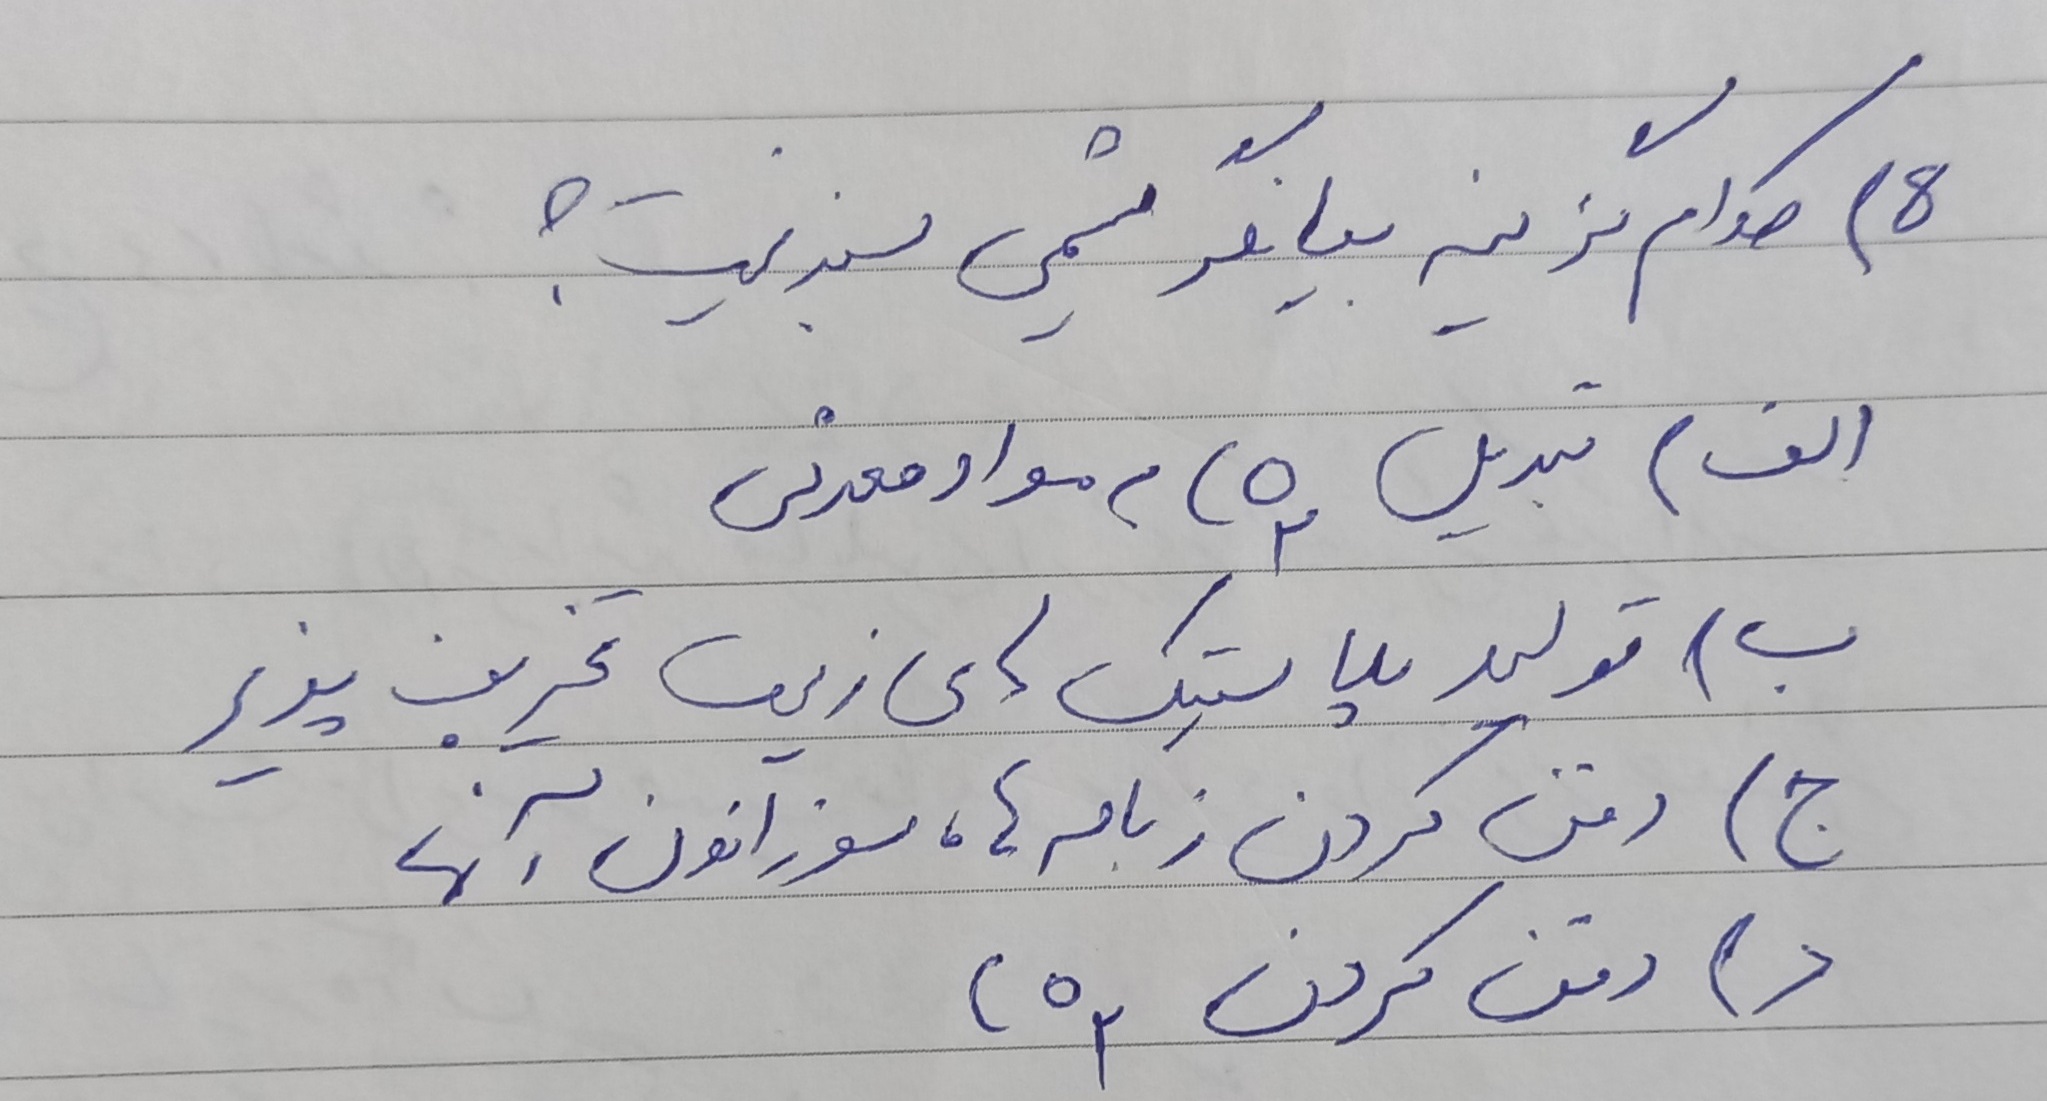 8) کدام گزینه بیانگر شیمی سبز نیست؟
الف) تبدیل CO₂ به مواد معدنی
ب) تولید پلاستیک های زیست تخریب پذیر
ج) دفن کردن زباله ها، سوزاندن آنها
د) دفن کردن CO₂